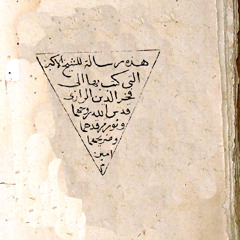 هذه رسالة للشيخ الاكبر
التي كتب بها الى
فخر الدين الرازي
قدس الله روحهما
ونور مرقدهما
وضريحهما
امين